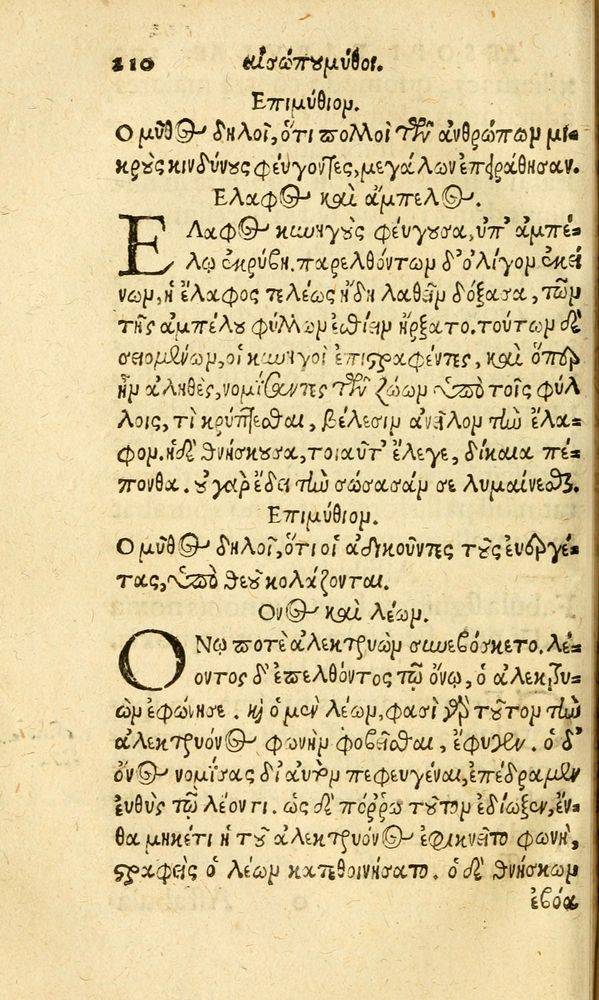 210 αἰσώπου μύθοι.
Επιμύθιον.
Ο μῦθος δηλοῖ, ὅτι πολλοὶ τῶν ἀνθρώπων μι-
κροὺς κινδύνους φεύγοντες, μεγάλων ἐπειράθησαν.
Ελαφος καὶ ἄμπελος.
ΕΛαφος κυνηγοὺς φεύγουσα, ὑπ' ἀμπέ-
λῳ ἐκρύβη. παρελθόντων δ' ὀλίγον ἐκεί
νων, ἡ ἔλαφος τελέως ἤδη λαθεῖν δόξασα, τῶν
τῆς ἀμπέλου φύλλων ἐσθίειν ἤρξατο. τούτων δὲ
σειομένων, οἱ κυνηγοὶ ἐπιστραφέντες, καὶ ὅπερ
ἦν ἀληθὲς, νομίσαντες τῶν ζώων ὑπὸ τοῖς φύλ
λοις, τὶ κρύπτεσθαι, βέλεσιν ἀνεῖλον τὴν ἔλα-
φον. ἡ δὲ θνήσκουσα, τοιαῦτ' ἔλεγε, δίκαια πέ-
πονθα. οὐ γὰρ ἔδει τὴν σώσασάν με λυμαίνεσθαι.
Επιμύθιον.
Ο μῦθος δηλοῖ, ὅτι οἱ ἀδικοῦντες τοὺς ἐυεργέ-
τας, ὑπὸ θεοῦ κολάζονται.
Ονος καὶ λέων.
ΟΝῳ ποτὲ ἀλεκτρυὼν συνεβόσκετο. λέ-
οντος δ' ἐπελθόντος τῷ ὄνῳ, ὁ ἀλεκτρυ-
ὼν ἐφώνησε. καὶ ὁ μὲν λέων, φασὶ γὰρ τοῦτον τὴν
ἀλεκτρυόνος φωνὴν φοβεῖσθαι, ἔφυγεν. ὁ δ'
ὄνος νομίσας δι' αὐτὸν πεφευγέναι, ἐπέδραμεν
ἐυθὺς τῷ λέοντι. ὡς δὲ πόῤῥω τοῦτον ἐδίωξεν, ἔν-
θα μηκέτι ἡ τοῦ ἀλεκτρυόνος ἐφικνεῖτο φωνὴ,
στραφεὶς ὁ λέων κατεθοινήσατο. ὁ δὲ θνήσκων
ἐβόα